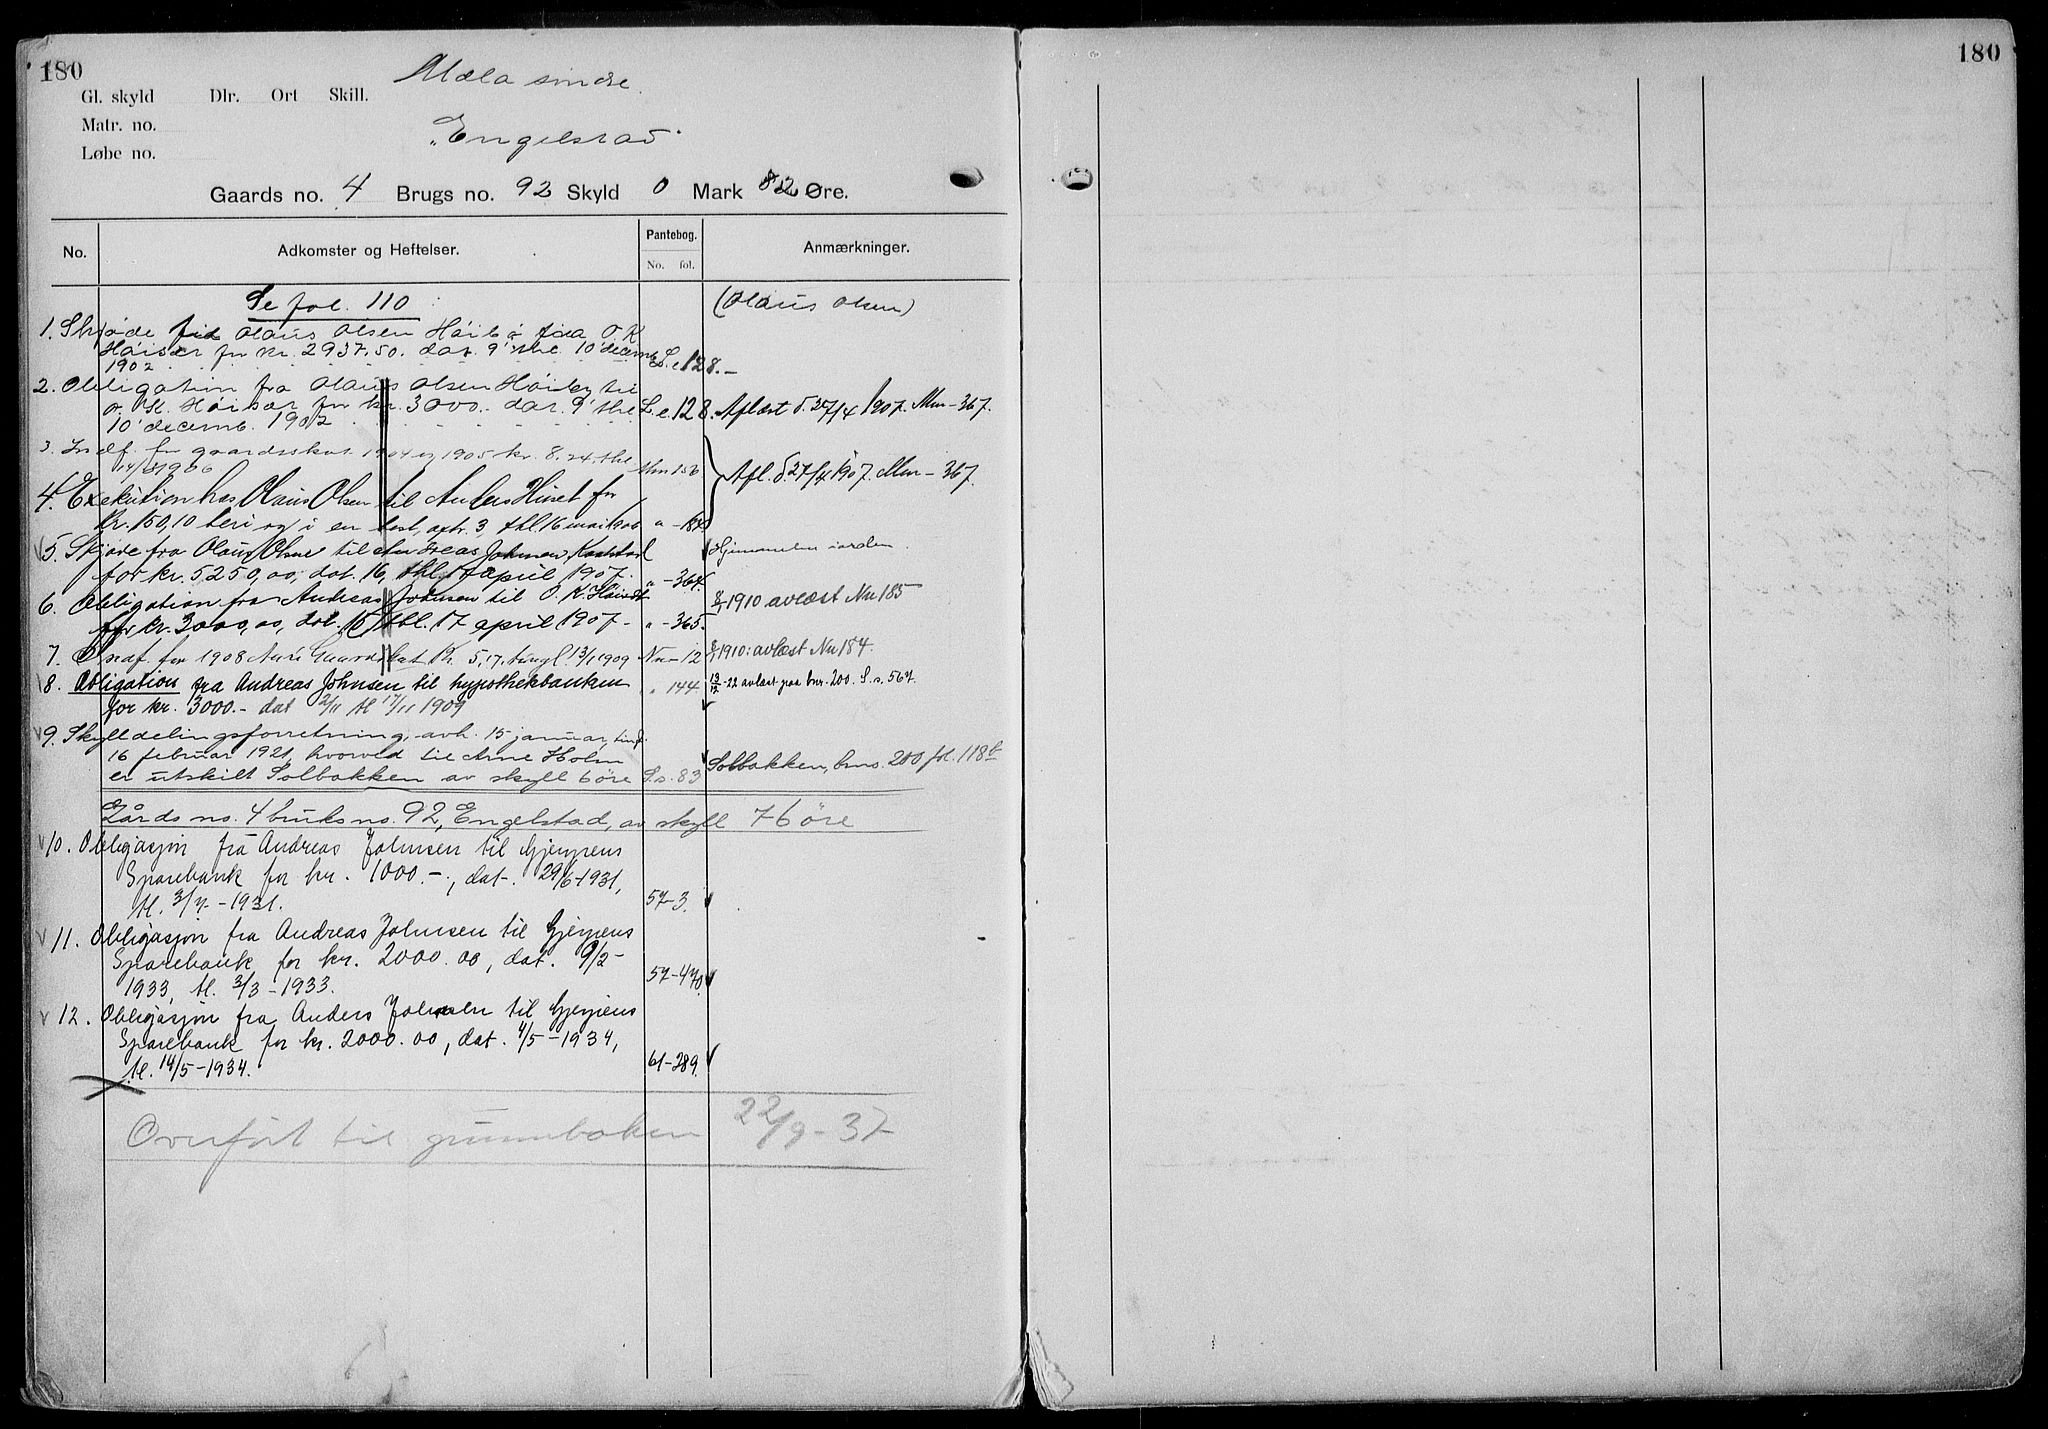 180
180
Gl. skyld Dlr. Ort Skill.
Mæla søndre
Matr. no.
"Engelstad"
Løbe no.
Gaards no. 4 Brugs no. 92 Skyld 0 Mark 82 Øre.
No. Adkomster og Heftelser. Pantebog. No. fol. Anmærkninger.
Se fol. 110 (Olaus Olsen)
1. Skjøde til Olaus Olsen Høiby fra O. K.
Høisæt for kr. 2937.50. dat. 9' thl. 10' decemb
1902 L.c. 128.-
2. Obligation fra Olaus Olsen Høiby til
O. K. Høisæt for kr. 3000.. dat. 9' thl. L.c. 128. Aflæst d. 27/4 1907. Mm-367.
10' decemb. 1902
3. Indf. for gaardsskat 1904 og 1905 kr. 8.24. thl
14/3 1906 Mm 156
4. Exekution hos Olaus Olsen til Anders for Afl. d. 27/4 1907. Mm-367.
Kr. 150,10 beri og i en post, extr. 3, thl. 16 mai 1906 " -
5. Skjøde fra Olaus Olsen til Andreas Johnsen Kaalstad Hjemmelen iorden.
for kr. 5250,00, dat. 16, thl. 17 april 1907. " - 364.
6. Obligation fra Andreas Johnsen til O. K. Høisæt 1910 avlæst Nn 185
for kr. 3000,00, dat. 15 thl. 17 april 1907- " - 365.
7. Indf. for 1908 Aars Gaardskat Kr. 5,17. tingl. 13/1 1909 Nn - 12 1910: avlæst Nn 184.
8. Obligation fra Andreas Johnsen til hypothekbanken " 144 13/12-22 avlæst paa bnr. 200. S.s. 567.
for kr. 3000.- dat 2/11 tl 17/11 1909
9. Skylddelingsforretning, avh. 15 januar, tingl.
16 februar 1921, hvorved til Arne Holm
er utskilt Solbakken av skyll 6 øre S.s. 83 Solbakken, brns. 200 fol. 118b
Gårds no. 4 bruks no. 92, Engelstad, av skyll 76 öre
10. Obligasjon fra Andreas Johnsen til Gjerpens
Sparebank for kr. 1000.-, dat. 29/6-1931,
tl. 3/7-1931. 57-3.
11. Obligasjon fra Andreas Johnsen til Gjerpens
Sparebank for kr. 2000.00, dat. 9/2-
1933, tl. 3/3-1933. 57-470.
12. Obligasjon fra Anders Johnsen til Gjerpens
Sparebank for kr. 2000.00, dat. 4/5-1934,
tl. 14/5-1934. 61-289.
Overført til grunnboken 22/9-37